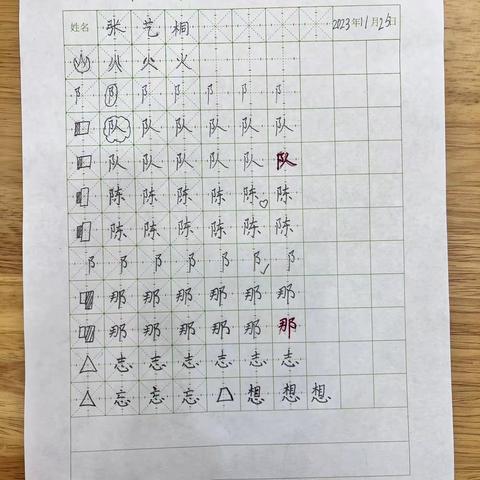 姓名 张艺桐 2023年11月25日
火火火
阝阝阝阝阝阝阝
队队队队队队
队队队队队队
陈陈陈陈陈陈
陈陈陈陈陈陈
阝阝阝阝阝阝阝
那那那那那那
那那那那那那
志志志志志志
忘忘忘想想想